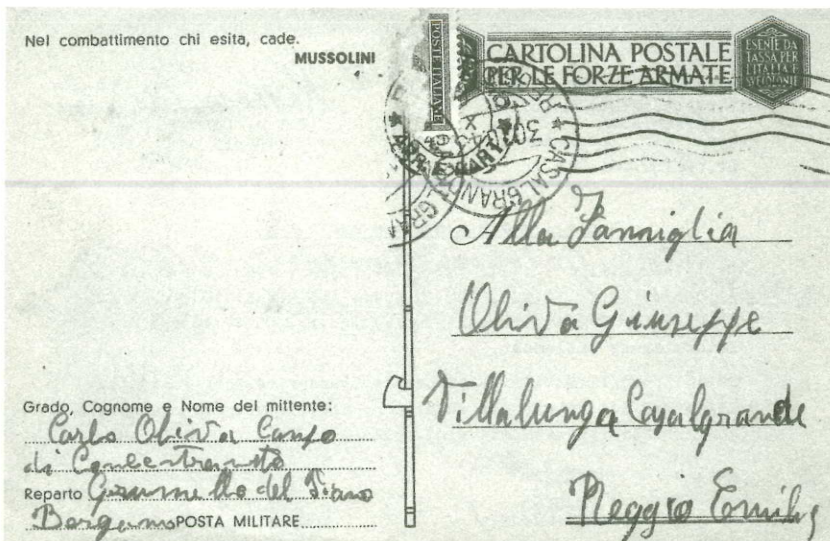 Nel combattimento chi esita, cade.
MUSSOLINI
POSTE ITALIANE
CARTOLINA POSTALE
PER LE FORZE ARMATE
ESENTE DA
TASSA PER
L'ITALIA E
CASALGRANDE
30
Alla Famniglia
Oliva Giuseppe
Villalunga Casalgrande
Reggio Emilia
Grado, Cognome e Nome del mittente:
Carlo Oliva Campo
di Concentramento
Reparto Grumello del Piano
Bergamo POSTA MILITARE